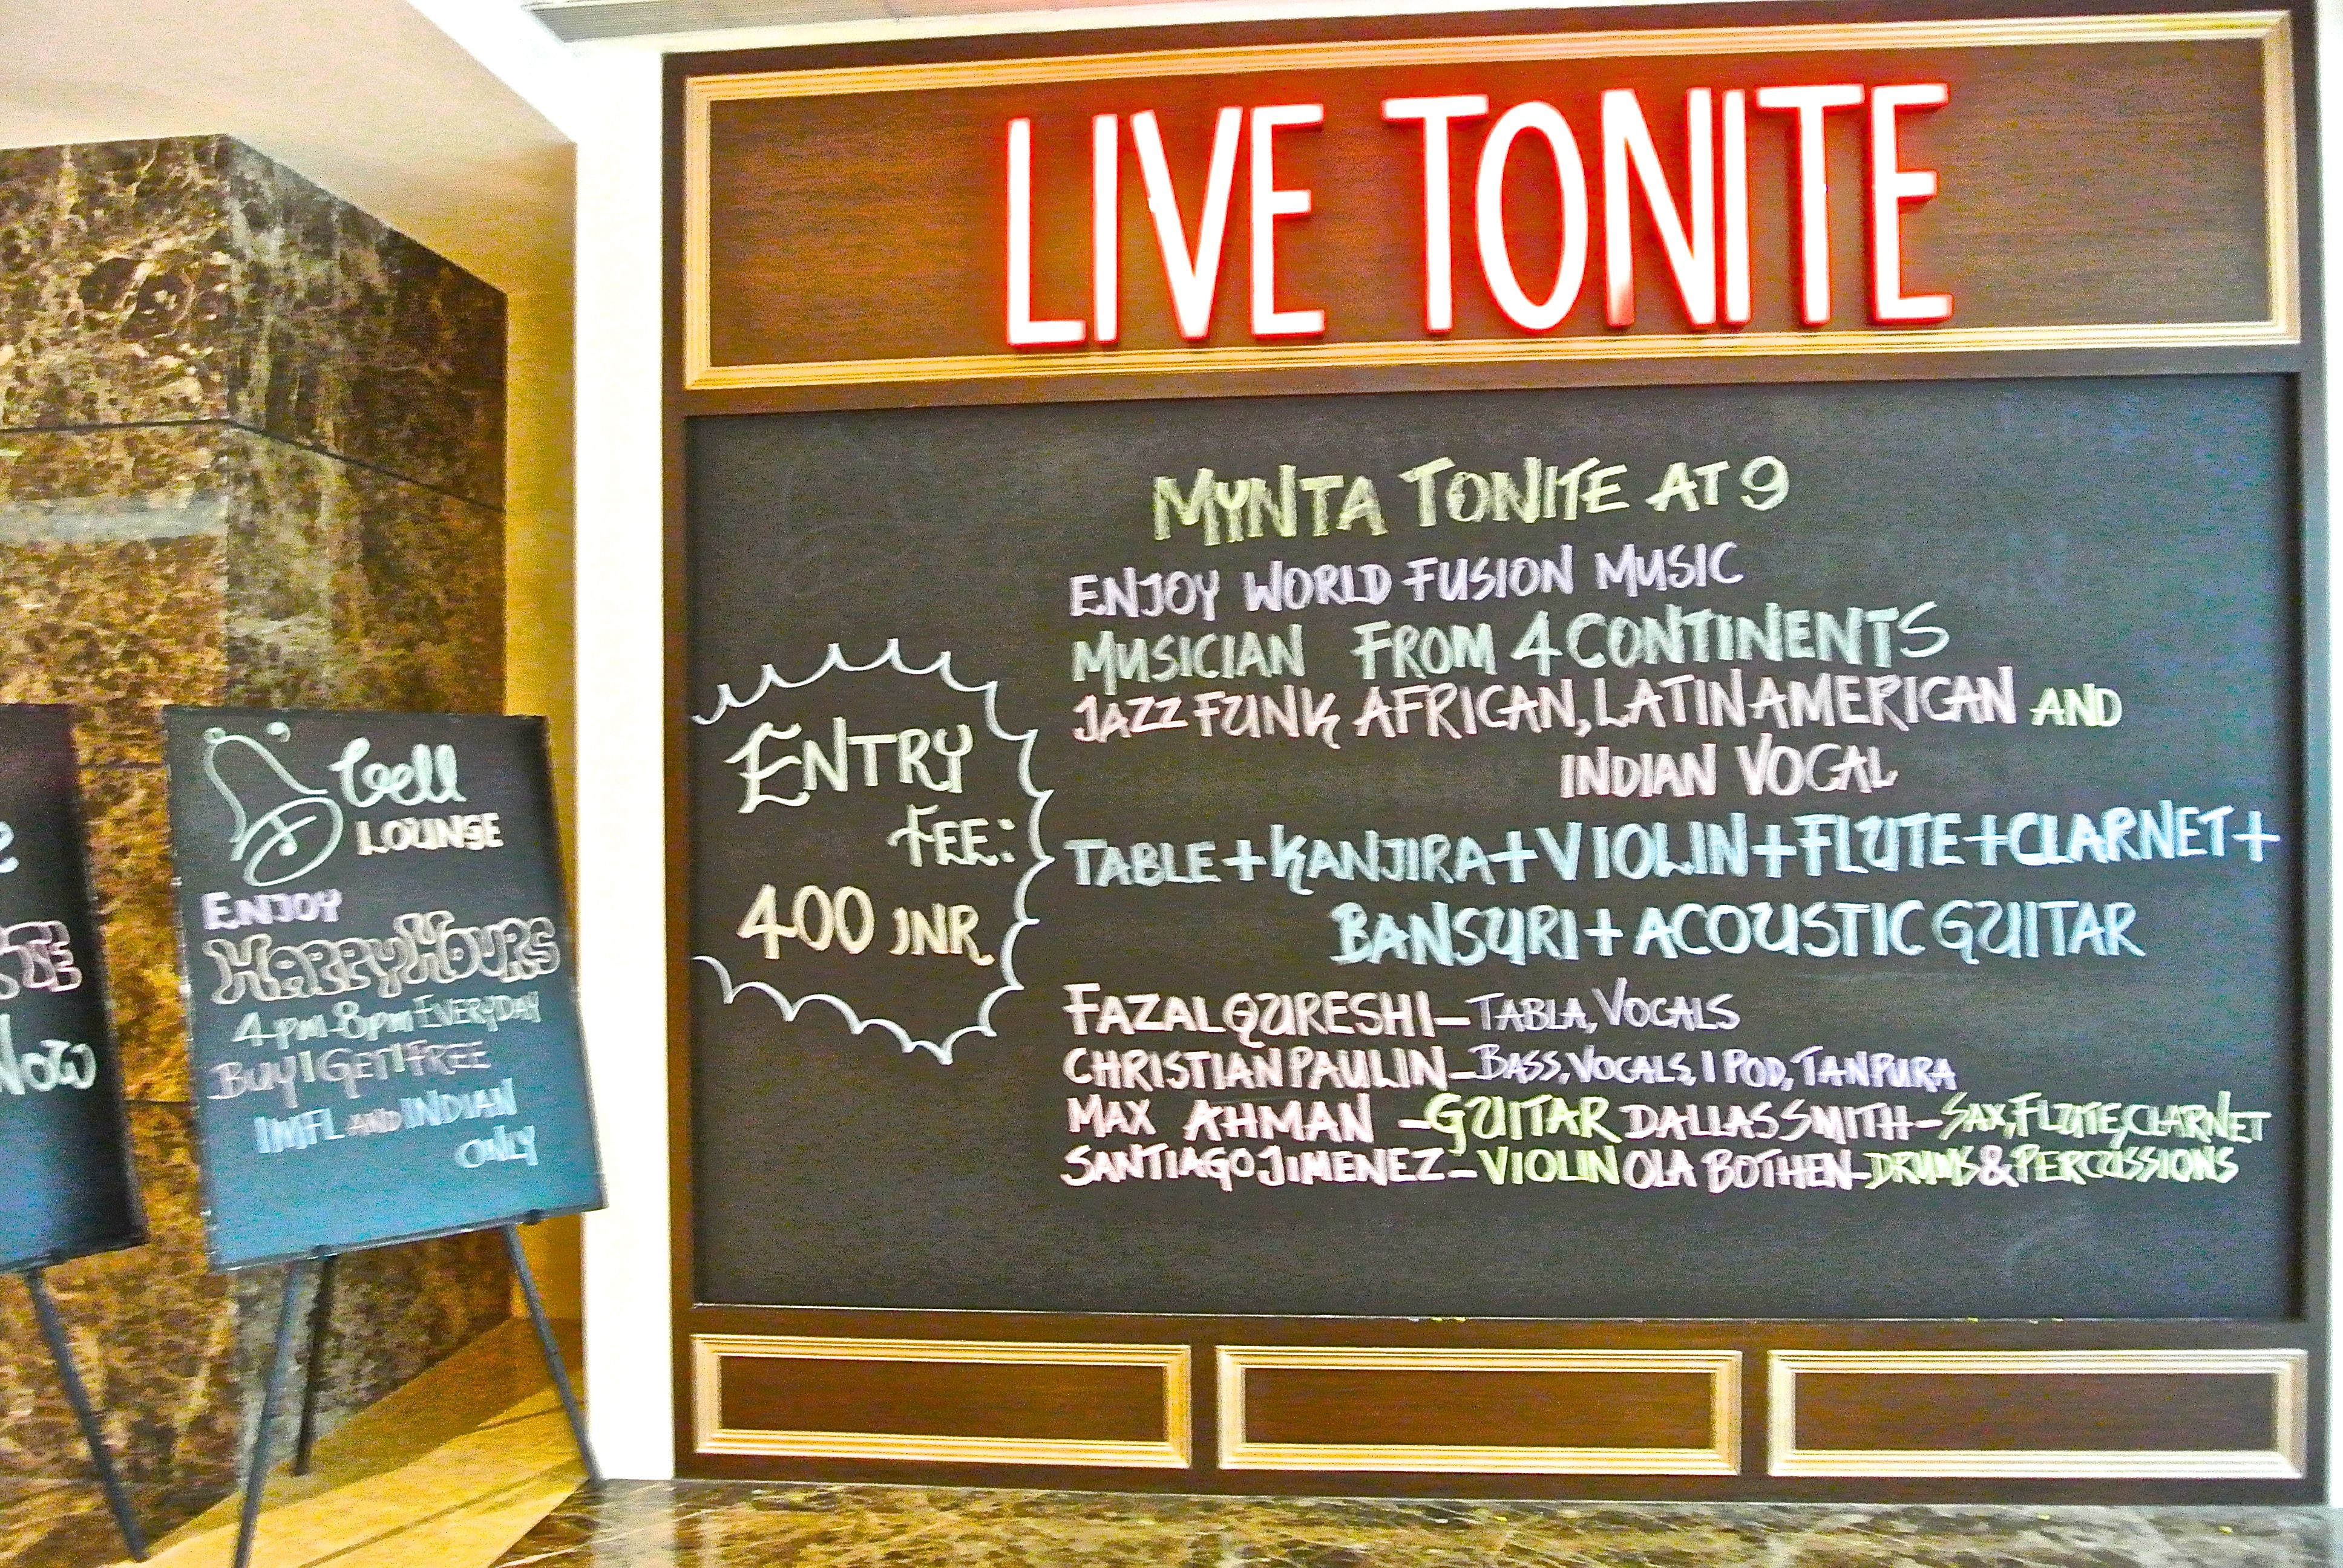 LIVE TONITE
MYNTA TONITE AT 9
ENJOY WORLD FUSION MUSIC
MUSICIAN FROM 4 CONTINENTS
JAZZ FUNK AFRICAN, LATIN AMERICAN AND
INDIAN VOCAL
TABLE + KANJIRA + VIOLIN + FLUTE + CLARNET +
BANSURI + ACOUSTIC GUITAR
FAZAL QURESHI - TABLA, VOCALS
CHRISTIAN PAULIN - BASS, VOCALS, I POD, TANPURA
MAX AHMAN - GUITAR DALLAS SMITH - SAX, FLUTE, CLARNET
SANTIAGO JIMENEZ - VIOLIN OLA BOTHEN - DRUMS & PERCUSSIONS
ENTRY
FEE:
400 INR
bell
LOUNGE
ENJOY
HAPPY HOURS
4 pm - 8 pm EVERYDAY
BUY 1 GET 1 FREE
IMFL AND INDIAN
ONLY
NOW